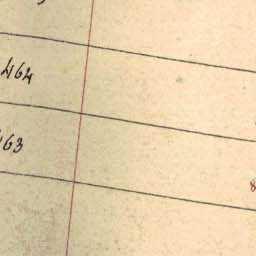 464
463
8